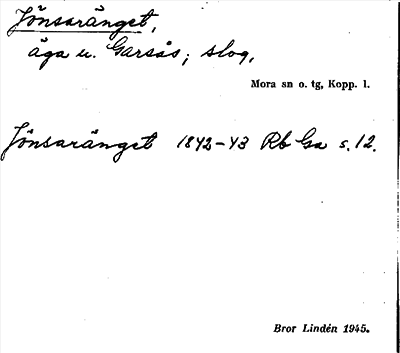 Jönsaränget,
äga u. Garsås; slog,
Mora sn o. tg, Kopp. l.
Jönsaränget 1842-43 Rb Ga s. 12.
Bror Lindén 1945.